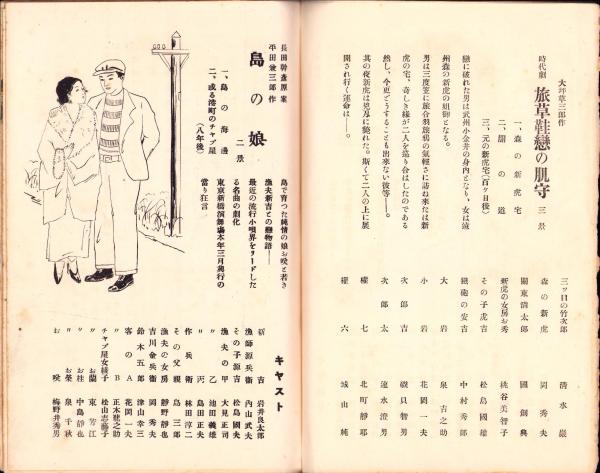 大坪草三郎作
時代劇 旅草鞋戀の肌守 三景
一、森の新虎宅
二、闇の道
三、元の新虎宅(百ケ日後)
戀に破れた男は武州小金井の身内となり、女は遠
州森の新虎の姐御となる。
男は三度笠に旅合羽旅鴉の氣輕さに訪ね來たは新
虎の宅、奇しき縁が二人を巡り合はしたのである
然し、今更どうすることも出來ない彼等―。
其の夜新虎は兇刄に斃れた。斯くて二人の上に展
開され行く運命は―。
三ッ目の竹次郎 清水巖
森の新虎 岡秀夫
關東清太郎 國個典
新虎の女房お秀 桃谷美智子
その子虎吉 松島國雄
鐵砲の安吉 中村秀郎
大岩 泉吉之助
小岩 花岡一夫
次郎吉 磯貝智男
次郎太 速水澄男
權七 北町靜耶
權六 城山純
長田幹彦原案
平田兼三郎作
島の娘 二景
一、島の海邊
二、或る港町のチャブ屋
(八年後)
島で育つた純情の娘お咲と若き
漁夫新吉との戀物語―
最近の流行小唄界をリードした
る名曲の劇化
東京新橋演舞場本年三月興行の
當り狂言
キャスト
新吉 岩井良太郎
漁師源兵衛 内山武夫
その子源吉 松島國夫
漁夫の甲 大見正司
〃乙 池田義雄
〃丙 島田正夫
作兵衛 林田淳二
その父親 島三郎
漁夫の女房 靜野靜也
吉川金兵衛 岡秀夫
鈴木五郎 津山幸三
客のA 花岡一夫
〃B 正木健之助
チャブ屋女綾子 松山志藤子
〃お蘭 東芳江
〃お桂 中島靜也
〃お榮 泉千秋
お咲 梅野井秀男